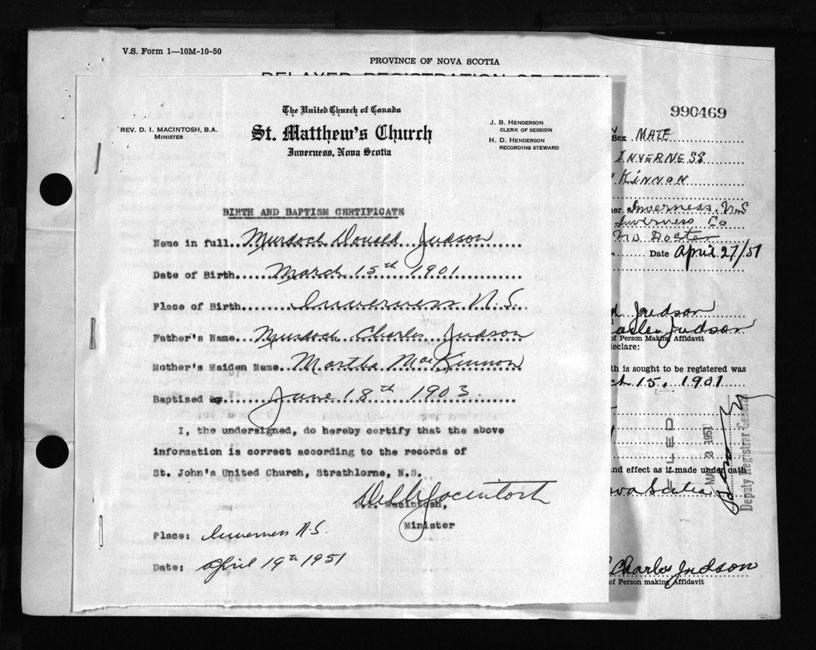 V.S. Form 1—10M-10-50
PROVINCE OF NOVA SCOTIA
DELAYED REGISTRATION OF BIRTH
990469
The United Church of Canada
REV. D. I. MACINTOSH, B.A.
MINISTER
St. Matthew's Church
Inverness, Nova Scotia
J. B. HENDERSON
CLERK OF SESSION
H. D. HENDERSON
RECORDING STEWARD
BIRTH AND BAPTISM CERTIFICATE
Name in full Murdoch Donald Judson
Date of Birth March 15th 1901
Place of Birth Inverness N.S.
Father's Name Murdoch Charles Judson
Mother's Maiden Name Martha MacKinnon
Baptized June 18th 1903
I, the undersigned, do hereby certify that the above
information is correct according to the records of
St. John's United Church, Strathlorne, N.S.
Minister
Place: Inverness N.S.
Date: April 19th 1951
Sex MALE
INVERNESS
KINNON
Inverness, N.S
Inverness Co
No Doctor
Date April 27/51
Judson
Judson
of Person Making Affidavit
declare:
th is sought to be registered was
ch 15, 1901
FILED
MAY 2 1951
Deputy Registrar General
and effect as if made under oath
ova Scotia
Charles Judson
of Person making Affidavit